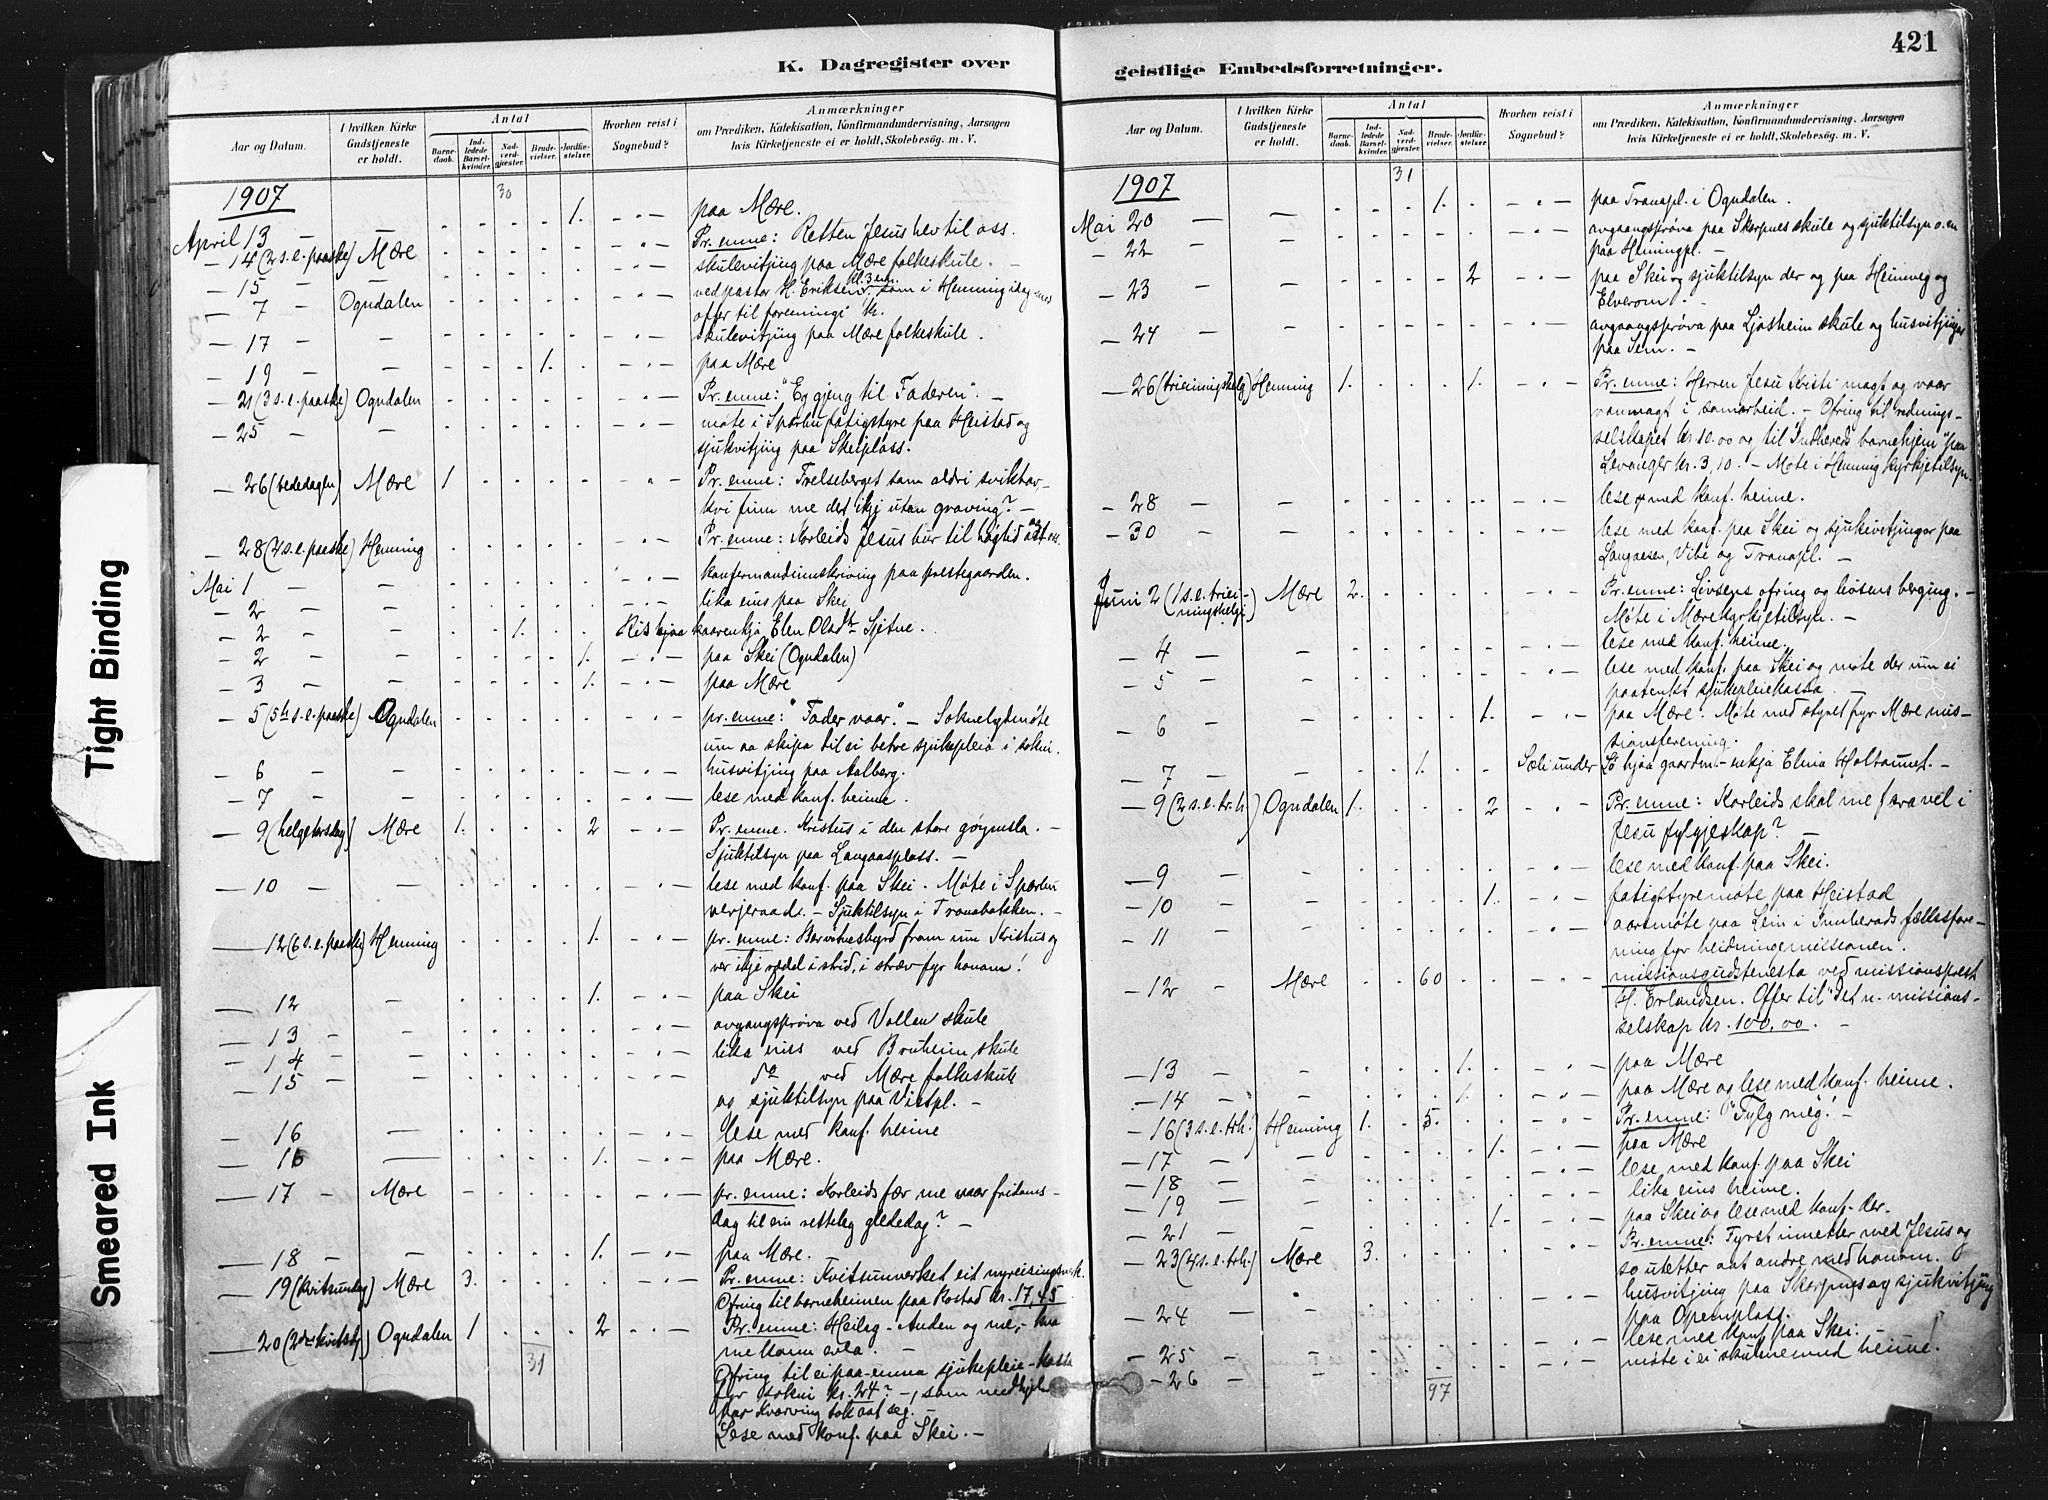 421
K. Dagregister over
geistlige Embedsforretninger.
Aar og Datum.
I hvilken Kirke Gudstjeneste er holdt.
Antal
Barne- daab.
Ind- ledede Barsel- kvinder.
Nad- verd- gjester
Brude- vielser.
Jordfæ- stelser.
Hvorhen reist i Sognebud?
Anmærkninger
om Prædiken, Katekisation, Konfirmandundervisning, Aarsagen
hvis Kirketjeneste ei er holdt, Skolebesøg. m. V.
1907 30
April 13 1. paa Mære.
— 14 (2 s. e. paaske) Mære Pr. emne: Retten Jesus hev til oss.
— 15 — — skulevitjing paa Mære folkeskule. —
— 7 — Ogndalen ved pastor H. Eriksen kl. 3 em. som i Henning idag med
ofer til foreningi kr.
— 17 — — skulevitjing paa Mære folkeskule.
— 19 — — 1. paa Mære
— 21 (3 s. e. paaske) Ogndalen Pr. emne: "Eg gjeng til Faderen". —
— 25 — — møte i Sparbu fatigstyre paa Heistad og
sjukvitjing paa Skeiplass.
— 26 (bededagen) Mære 1 Pr. emne: Frelseberget som aldri sviktar —
kvi finn me det ikje utan graving? —
— 28 (4 s. e. paaske) Henning Pr. emne: Korleids Jesus bur til høgtid aat oss.
Mai 1 — — konfermandinnskriving paa prestegaarden.
— 2 — — lika eins paa Skei
— 2 — — 1. Ris hjaa kaarenkja Elen Olsdtr Sjetne.
— 2 — — 1. paa Skei (Ogndalen)
— 3 — — 1. paa Mære
— 5 (5te s. e. paaske) Ogndalen pr. emne: "Fader vaar". — Soknelydmøte
um aa skipa til ei betre sjukepleia i sokni.
— 6 — — husvitjing paa Aalberg.
— 7 — — lese med konf. heime.
— 9 (helgetorsdag) Mære 1. 2 Pr. emne. Kristus i den store gøymsla. —
Sjuktilsyn paa Langaasplass. —
— 10 — — lese med konf. paa Skei. Møte i Sparbu
verjeraad. — Sjuktilsyn i Tranabakken. —
— 12 (6 s. e. paaske) Henning 1. pr. emne: Ber vitnesbyrd fram um Kristus og
ver ikje rædd i strid, i stræv fyr honom!
— 12 — 1. paa Skei
— 13 — — avgangsprøva ved Vollan skule
— 14 — — lika eins ved Bruheim skule
— 15 — — do ved Mære folkeskule
og sjuktilsyn paa Vistpl. —
— 16 — lese med konf. heime
— 16 — 1. paa Mære.
— 17 — Mære pr. emne: Korleids fær me vaar fridoms-
dag til ein retteleg gledesdag? —
— 18 — — 1. paa Mære.
— 19 (kvitsundag) Mære 3. Pr. emne: Kvitsunverket eit nyreisingsverk.
Ofring til barneheimen paa Rostad kr. 17,45
— 20 (2dr kvitsd.) Ogndalen 1 2 Pr. emne: Heilag-Anden og me, —
31
Ofring til ei paa-emna sjukepleie-kassa
fyr sokni kr. 24? —, som medhjelp
har Kvarving tok aat seg. —
Lese med konf. paa Skei. —
Aar og Datum.
I hvilken Kirke Gudstjeneste er holdt.
Antal
Barne- daab.
Ind- ledede Barsel- kvinder.
Nad- verd- gjester
Brude- vielser.
Jordfæ- stelser
Hvorhen reist i Sognebud?
Anmærkninger
om Prædiken, Katekisation, Konfirmandundervisning, Aarsagen
hvis Kirketjeneste ei er holdt, Skolebesøg. m. V.
1907 31
Mai 20 — — 1. paa Tranapl. i Ogndalen.
— 22 — avgaangsprøva paa Skarpnes skule og sjuktilsyn o. m
paa Henningpl. —
— 23 — — 2 paa Skei og sjuktilsyn der og paa Heimveg og
Elverom.
— 24 — — avgaangsprøva paa Ljosheim skule og husvitjingar
paa Sem. —
— 26 (trieiningshelg) Henning 1. 1. Pr. emne: Herren Jesu Kristi magt og vaar
vanmagt i samarbeid. — Ofring til rednings-
selskapet kr. 10.00 og til Indherreds barnehjem "paa
Levanger kr. 3,10. — Møte i Henning kyrkjetilsyn
— 28 — — lese med konf. heime.
— 30 — — lese med konf. paa Skei og sjukevitjingar paa
Langaasen, Vibe og Tranapl. —
Juni 2 (1 s. e. triei- ningshelgi) Mære 2. Pr. emne: Livsens ofring og livsens berging. —
Møte i Mære kyrkjetilsyn. —
— 4 — — lese med konf. heime.
— 5 — — lese med konf. paa Skei og møte der um ei
paatenkt sjukepleiekassa
— 6 — — 1. paa Mære. Møte med styret fyr Mære mis-
sionsforening.
— 7 — — 1. Sæli under Lø hjaa gaardm.-enkja Elina Holtaunet. —
— 9 (2 s. e. tr. h.) Ogndalen 1. 2 Pr. emne: Korleids skal me fara vel i
Jesu fylgjeskap? —
— 9 — — lese med konf. paa Skei.
— 10 — — 1. fatigstyremøte paa Heistad
— 11 — — aarsmøte paa Lein i Innherads fællesfore-
ning fyr heidningemissionen.
— 12 — Mære 60 missionsgudstenesta ved missionsprest
H. Erlandsen. Offer til "det n. missions-
selskap kr. 100,00. —
— 13 — — 1. paa Mære
— 14 — — 1. paa Mære og lese med konf. heime.
— 16 (3 s. e. trh.) Henning 1. 5. Pr. emne: "Fylg meg! —
— 17 — — 1. paa Mære
— 18 — — lese med konf. paa Skei
— 19 — — lika eins heime.
— 21 — — 1. paa Skei og lese med konf. der.
— 23 (4 s. e. trh.) Mære 3. Pr. emne: Fyrst innetter med Jesus og
so utetter aat andre med honom.
— 24 — — husvitjing paa Skarpnes og sjukvitjing
paa Opemplass.
— 25 — — lese med konf. paa Skei.
— 26 — — møte i ei skulenemnd heime.
97
Tight Binding
Smeared Ink